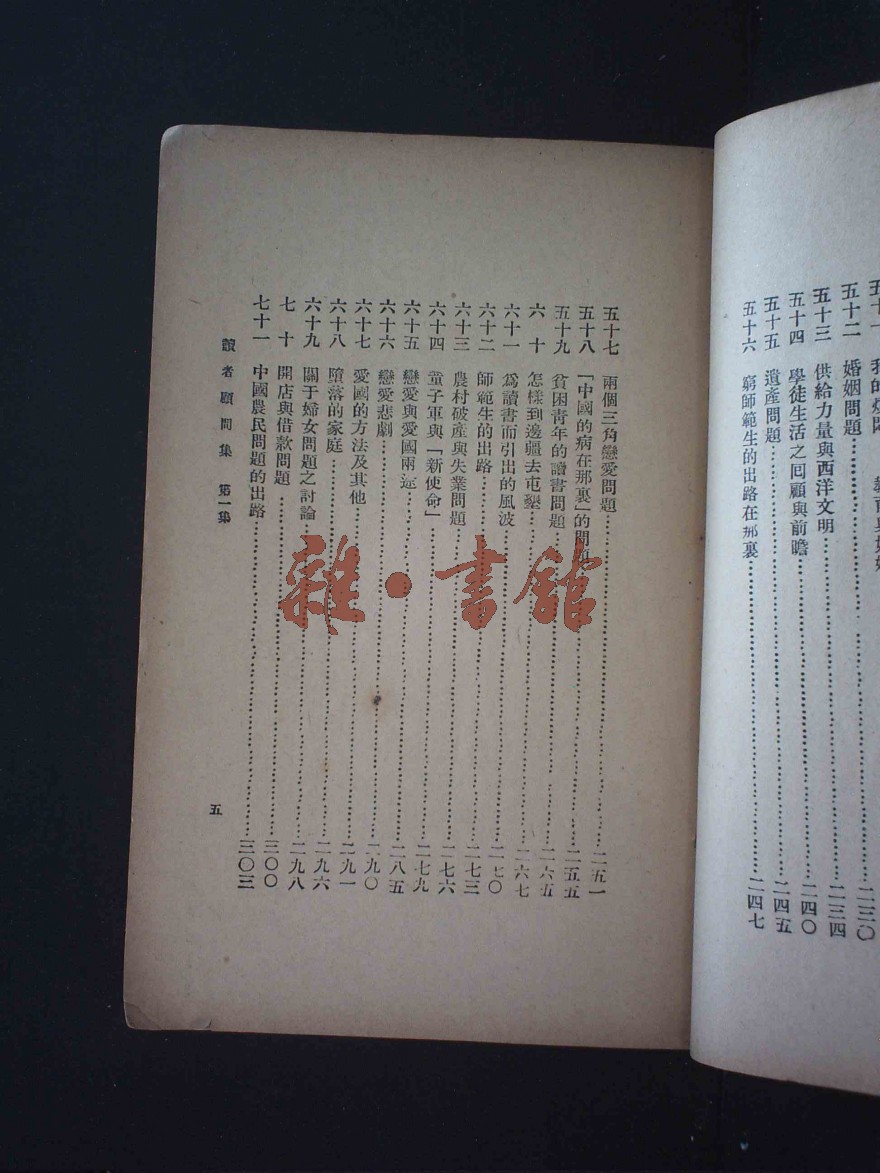 五十二 婚姻問題 二三〇
五十三 供給力量與西洋文明 二三四
五十四 學徒生活之回顧與前瞻 二四〇
五十五 遺產問題 二四五
五十六 窮師範生的出路在那裏 二四七
五十七 兩個三角戀愛問題 二五一
五十八 「中國的病在那裏」的問題 二五五
五十九 貧困青年的讀書問題 二六五
六十 怎樣到邊疆去屯墾 二六七
六十一 爲讀書而引出的風波 二七〇
六十二 師範生的出路 二七三
六十三 農村破產與失業問題 二七六
六十四 童子軍與「新使命」 二七九
六十五 戀愛與愛國兩途 二八五
六十六 戀愛悲劇 二九〇
六十七 愛國的方法及其他 二九一
六十八 墮落的家庭 二九六
六十九 關于婦女問題之討論 二九八
七十 開店與借款問題 三〇〇
七十一 中國農民問題的出路 三〇三
讀者顧問集 第一集
五
雜·書館